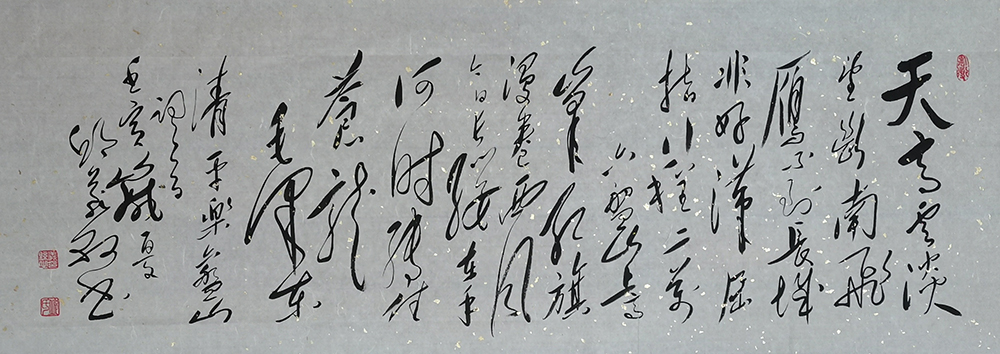 天高云淡
望断南飞
雁不到长城
非好汉屈
指行程二万
六盘山上高
峰红旗
漫卷西风
今日长缨在手
何时缚住
苍龙
毛泽东
清平乐六盘山
词一首
壬寅
书